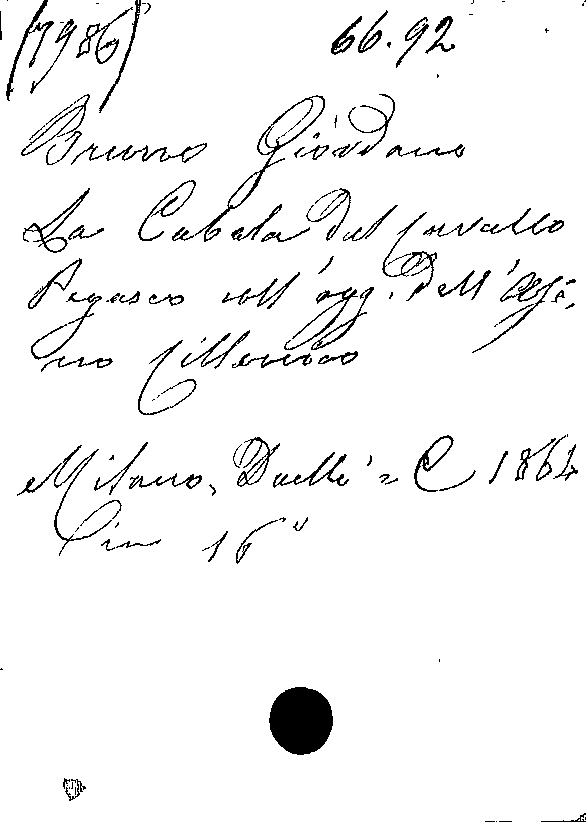 (7986) 66.92
Bruno Giordano
La Cabala del cavallo
Pegaseo coll'agg. dell'Asi,
no Cillenico
Milano, Daelli = C 1864
in 16°